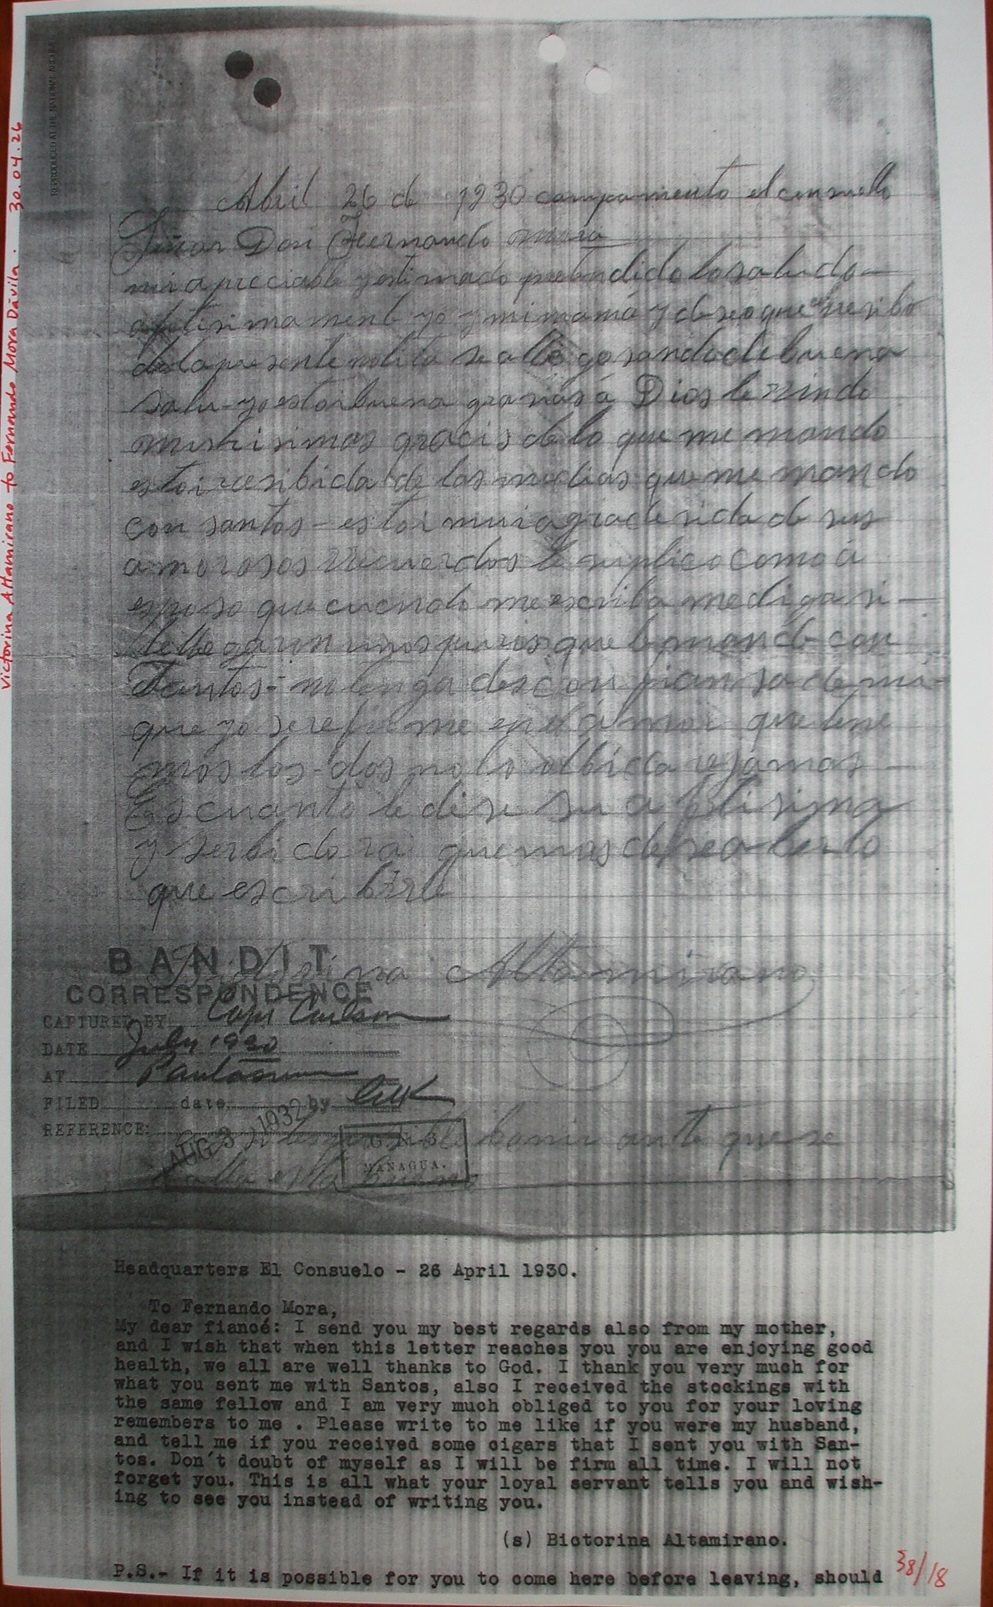 Victorina Altamirano to Fernando Mora Dávila. 30.04.26
REPRODUCED AT THE NATIONAL ARCHIVES
Abril 26 de 1930 campamento el consuelo
Señor Don Fernando mora
mi apreciable y estimado pretendido lo saludo
yo y mi mamá y deseo que resibo
de la presente notita se alle gosando de buena
salu- yo estoi buena grasias á Dios le rindo
muchisimas gracis de lo que me mando
estoi resibida de las medias que me mando
con santos - estoi mui agradesida de sus
amorosos recuerdos le suplico como á
esposo que cuendo me escriba me diga si
le llegaron unos puros que le mande con
Santos - no tenga desconfiansa de mi
que yo sere firme en el ámor que tene
mos los-dos no lo olbidare jamas
Es cuanto le dise su afetisima
y serbidora que mas desea berlo
que escribirle
Bictorina Altamirano
BANDIT
CORRESPONDENCE
CAPTURED BY Capt Carlson
DATE July 1930
AT
FILED date by
REFERENCE:
AUG 3 1932
MANAGUA.
posible benir antes que se
balla
Headquarters El Consuelo - 26 April 1930.
To Fernando Mora,
My dear fiancé: I send you my best regards also from my mother,
and I wish that when this letter reaches you you are enjoying good
health, we all are well thanks to God. I thank you very much for
what you sent me with Santos, also I received the stockings with
the same fellow and I am very much obliged to you for your loving
remembers to me . Please write to me like if you were my husband,
and tell me if you received some cigars that I sent you with San-
tos. Don't doubt of myself as I will be firm all time. I will not
forget you. This is all what your loyal servant tells you and wish-
ing to see you instead of writing you.
(s) Bictorina Altamirano.
P.S.- If it is possible for you to come here before leaving, should
38/18